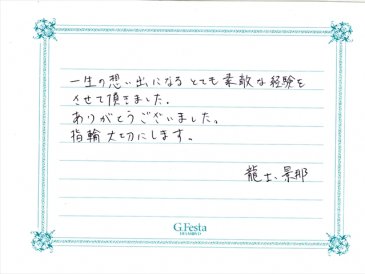 一生の想い出になるとても素敵な経験を
させて頂きました.
ありがとうございました。
指輪大切にします。
龍士、景那
G.Festa